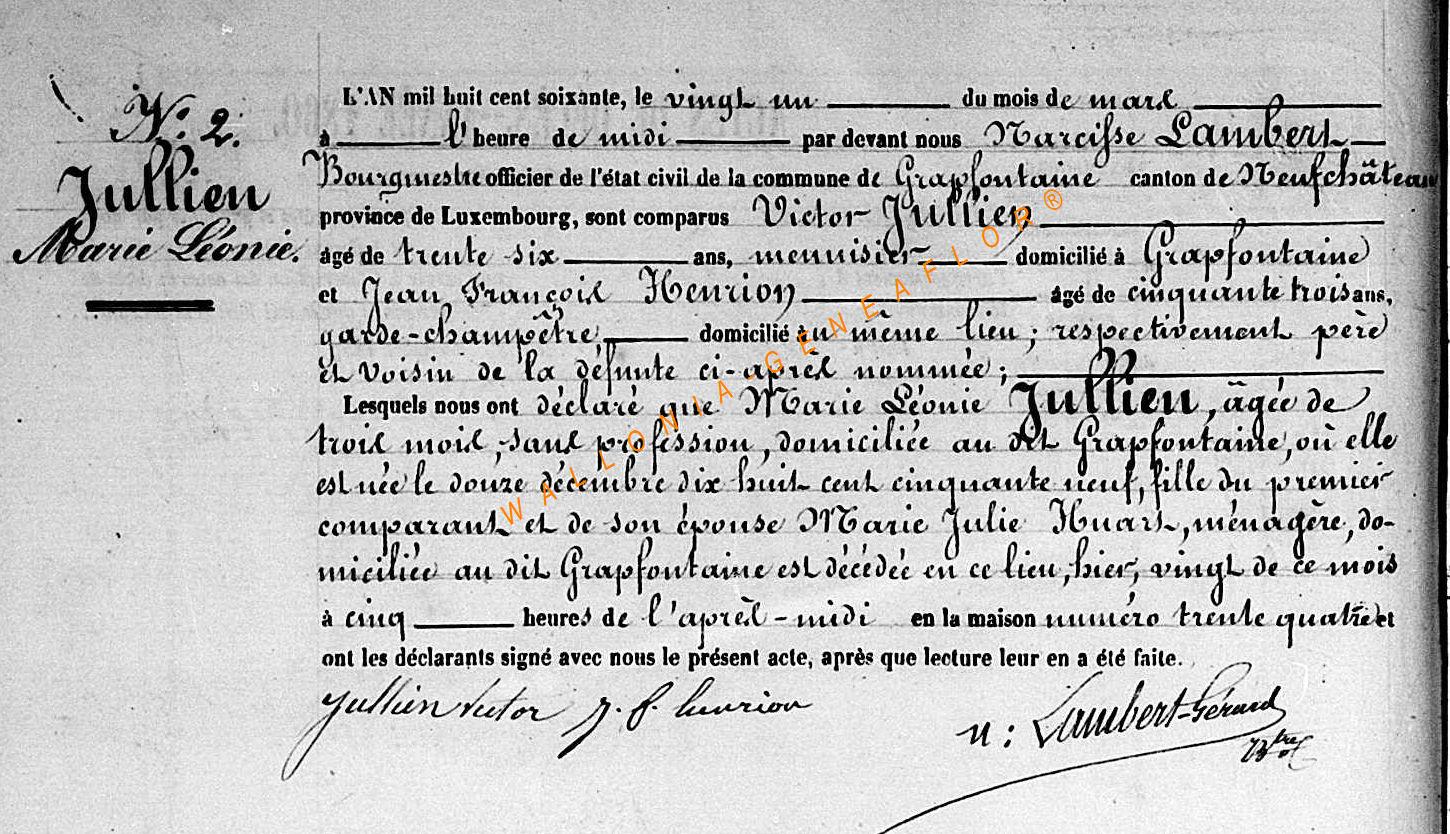 N.º 2.
Jullien
Marie Léonie.
L'AN mil huit cent soixante, le vingt un du mois de mars
à l'heure de midi par devant nous Narcisse Lambert
Bourgmestre officier de l'état civil de la commune de Grapfontaine canton de Neufchâteau
province de Luxembourg, sont comparus Victor Jullien
âgé de trente six ans, menuisier domicilié à Grapfontaine
et Jean François Henrion âgé de cinquante trois ans,
garde-champêtre, domicilié au même lieu; respectivement père
et voisin de la défunte ci-après nommée;
Lesquels nous ont déclaré que Marie Léonie Jullien, âgée de
trois mois, sans profession, domiciliée au dit Grapfontaine, où elle
est née le douze décembre dix huit cent cinquante neuf, fille du premier
comparant et de son épouse Marie Julie Huart, ménagère, do-
miciliée au dit Grapfontaine est décédée en ce lieu, hier, vingt de ce mois
à cinq heures de l'après-midi en la maison numéro trente quatre et
ont les déclarants signé avec nous le présent acte, après que lecture leur en a été faite.
Jullien Victor J. f. henrion
n: Lambert-Gérard
WALLONIA-GENEAFLOR®